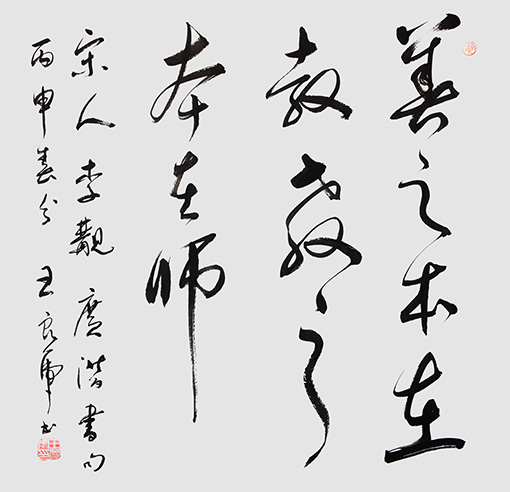 善之本在
教教之
本在师
宋人李覯廣潜書句
丙申春分王良虎书